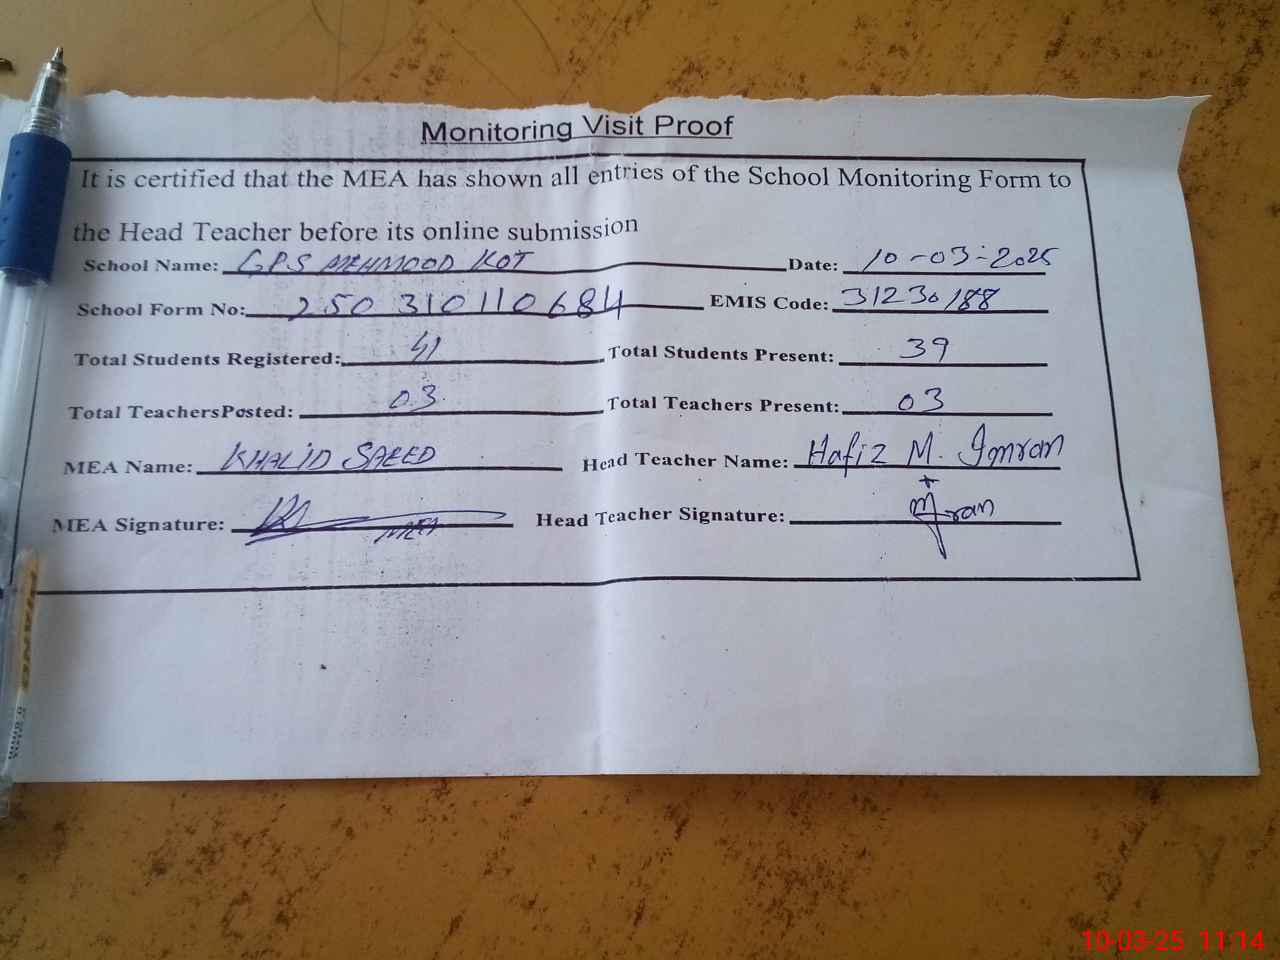 Monitoring Visit Proof
It is certified that the MEA has shown all entries of the School Monitoring Form to
the Head Teacher before its online submission
School Name: GPS MEHMOOD KOT Date: 10-03-2025
School Form No: 250310110684 EMIS Code: 31230188
Total Students Registered: 41 Total Students Present: 39
Total Teachers Posted: 03 Total Teachers Present: 03
MEA Name: KHALID SAEED Head Teacher Name: Hafiz M. Imran
MEA Signature: MEA Head Teacher Signature: Imran
10-03-25 11:14